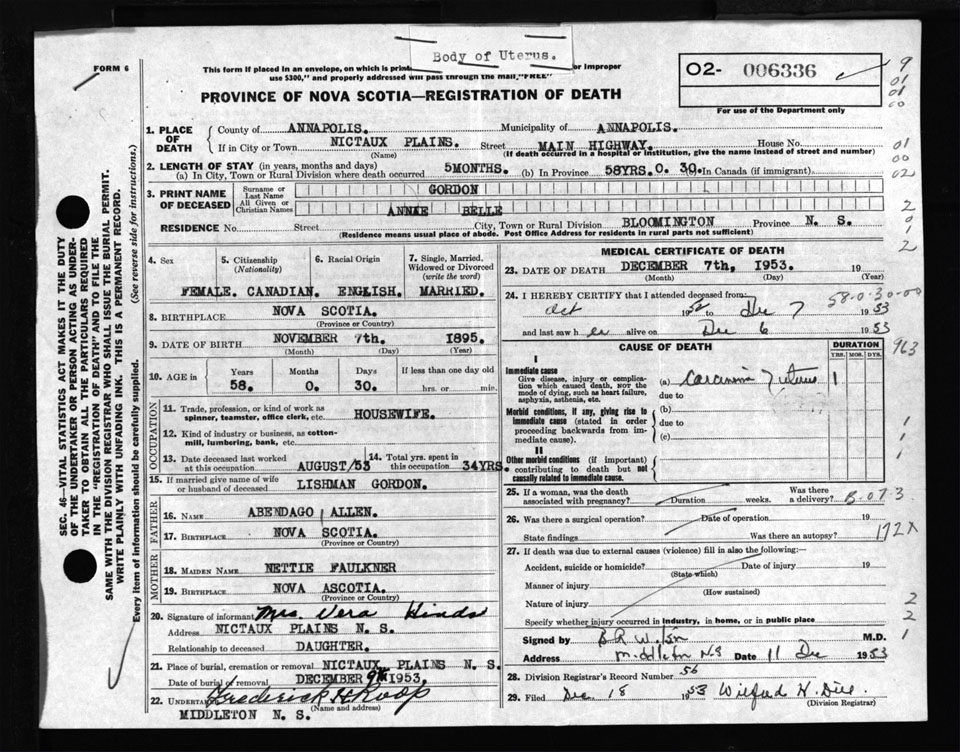 Body of Uterus.
FORM 6
This form if placed in an envelope, on which is or improper
use $300," and properly addressed will pass through the mail, "FREE"
O2- 006336
9
01
01
00
PROVINCE OF NOVA SCOTIA—REGISTRATION OF DEATH
For use of the Department only
1. PLACE OF DEATH
County of ANNAPOLIS. Municipality of ANNAPOLIS.
If in City or Town NICTAUX PLAINS. Street MAIN HIGHWAY. House No.
(Name) (If death occurred in a hospital or institution, give the name instead of street and number)
01
00
02
2. LENGTH OF STAY (in years, months and days)
(a) In City, Town or Rural Division where death occurred 5MONTHS. (b) In Province 58YRS. 0. 30. In Canada (if immigrant)
3. PRINT NAME OF DECEASED
Surname or Last Name GORDON
All Given or Christian Names ANNIE BELLE
2
0
1
2
RESIDENCE No. Street City, Town or Rural Division BLOOMINGTON Province N. S.
(Residence means usual place of abode. Post Office Address for residents in rural parts not sufficient)
SEC. 46—VITAL STATISTICS ACT MAKES IT THE DUTY
OF THE UNDERTAKER OR PERSON ACTING AS UNDER-
TAKER TO OBTAIN ALL THE PARTICULARS REQUIRED
IN THE "REGISTRATION OF DEATH" AND TO FILE THE
SAME WITH THE DIVISION REGISTRAR WHO SHALL ISSUE THE BURIAL PERMIT.
WRITE PLAINLY WITH UNFADING INK. THIS IS A PERMANENT RECORD.
Every item of information should be carefully supplied. (See reverse side for instructions.)
4. Sex
5. Citizenship
(Nationality)
6. Racial Origin
7. Single, Married, Widowed or Divorced
(write the word)
FEMALE. CANADIAN. ENGLISH. MARRIED.
8. BIRTHPLACE NOVA SCOTIA.
(Province or Country)
9. DATE OF BIRTH NOVEMBER 7th. 1895.
(Month) (Day) (Year)
10. AGE in
Years Months Days If less than one day old
58. 0. 30. hrs. or min.
OCCUPATION
11. Trade, profession, or kind of work as
spinner, teamster, office clerk, etc. HOUSEWIFE.
12. Kind of industry or business, as cotton-
mill, lumbering, bank, etc.
13. Date deceased last worked
at this occupation AUGUST/53
14. Total yrs. spent
in this occupation 34YRS.
15. If married give name of wife
or husband of deceased LISHMAN GORDON.
FATHER
16. NAME ABENDAGO ALLEN.
17. BIRTHPLACE NOVA SCOTIA.
(Province or Country)
MOTHER
18. MAIDEN NAME NETTIE FAULKNER
19. BIRTHPLACE NOVA ASCOTIA.
(Province or Country)
20. Signature of informant Mrs. Vera Hinds
Address NICTAUX PLAINS N. S.
Relationship to deceased DAUGHTER.
21. Place of burial, cremation or removal NICTAUX PLAINS N. S.
Date of burial or removal DECEMBER 9th 1953,
22. UNDERTAKER Frederick H Roop
(Name and address)
MIDDLETON N. S.
MEDICAL CERTIFICATE OF DEATH
23. DATE OF DEATH DECEMBER 7th, 1953. 19
(Month) (Day) (Year)
24. I HEREBY CERTIFY that I attended deceased from:
58-0-30-00
Oct 1952 to Dec 7 1953
and last saw her alive on Dec 6 1953
CAUSE OF DEATH
DURATION
YRS. MOS. DYS.
963
I
Immediate cause
Give disease, injury or complica-
tion which caused death, NOT the
mode of dying, such as heart failure,
asphyxia, asthenia, etc.
(a) Carcinoma Uterus 1
due to
Morbid conditions, if any, giving rise to
immediate cause (stated in order
proceeding backwards from im-
mediate cause).
(b)
due to
(c)
1
1
1
II
Other morbid conditions (if important)
contributing to death but not
causally related to immediate cause.
25. If a woman, was the death
associated with pregnancy? Duration weeks. Was there
a delivery?
B-073
26. Was there a surgical operation? Date of operation 19
State findings Was there an autopsy?
172X
27. If death was due to external causes (violence) fill in also the following:—
Accident, suicide or homicide? Date of injury 19
(State which)
Manner of injury
(How sustained)
Nature of injury
Specify whether injury occurred in industry, in home, or in public place
2
2
1
Signed by M.D.
Address Middleton NS Date 11 Dec 1953
28. Division Registrar's Record Number 56
29. Filed Dec. 18 1953
(Division Registrar)